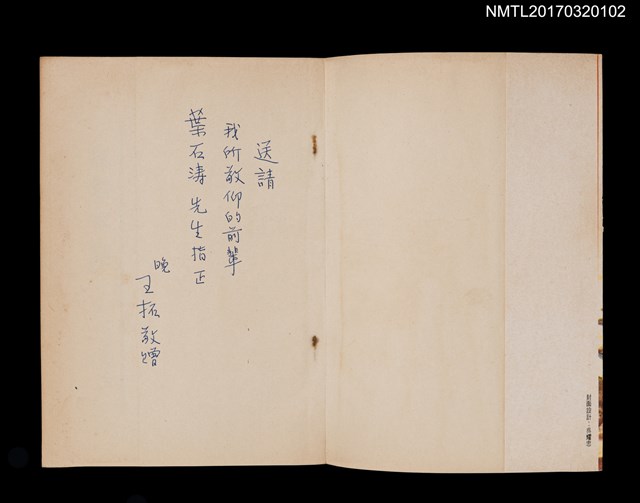 NMTL20170320102
送請
我所敬仰的前輩
葉石濤先生指正
晚
王拓敬贈
封面設計